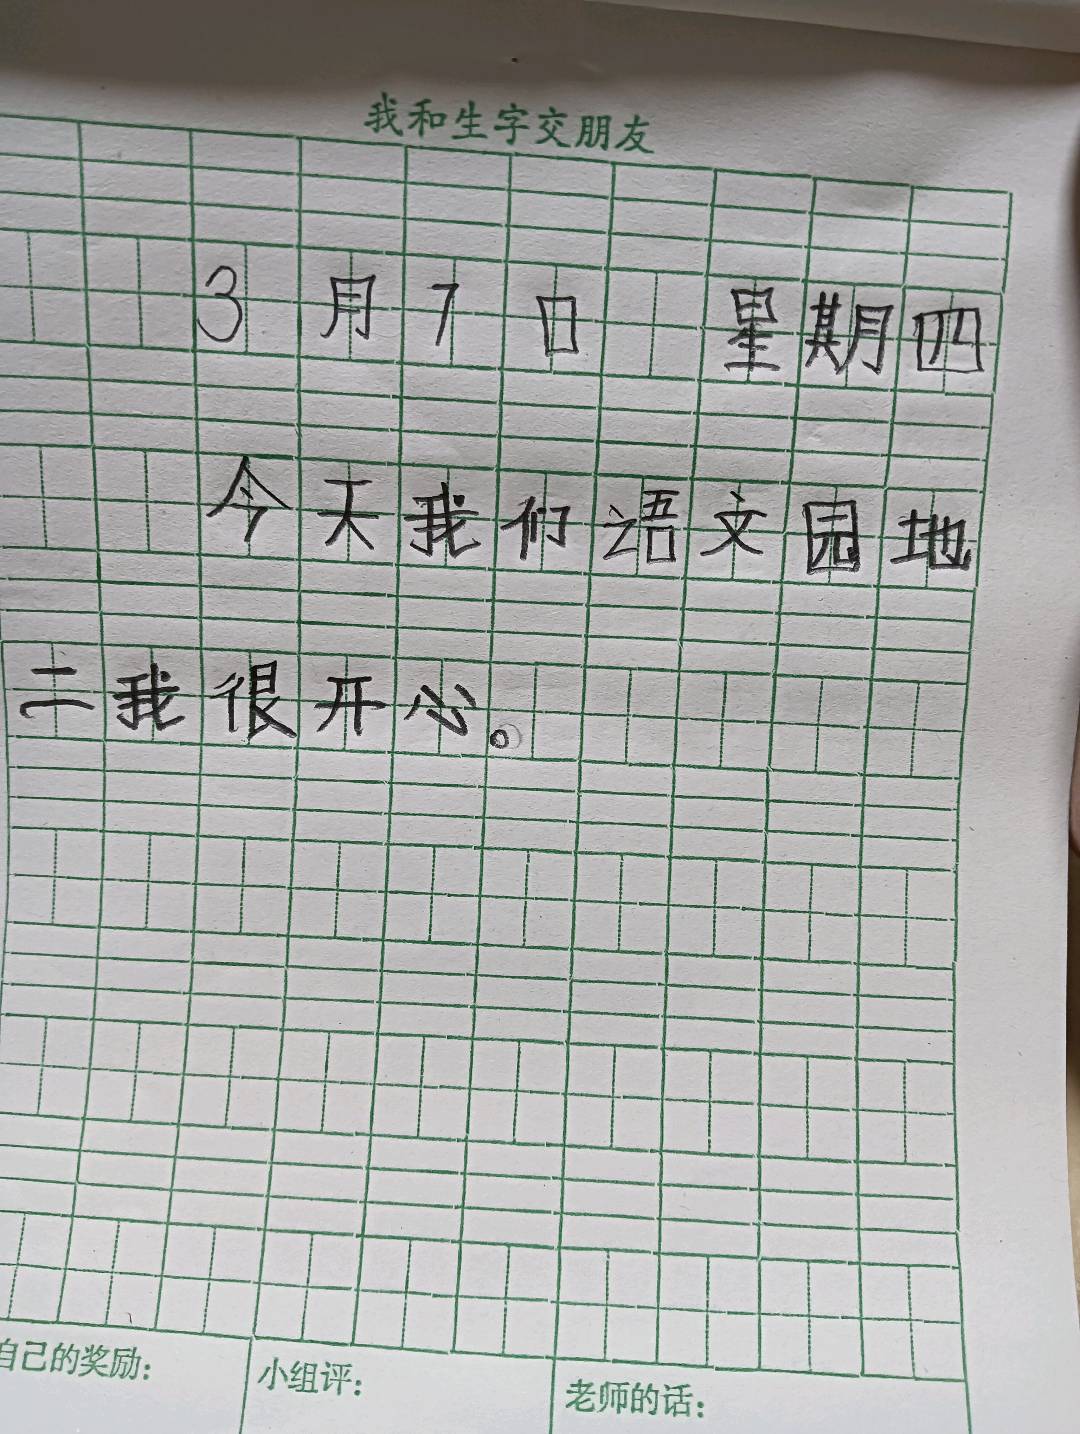 我和生字交朋友
3月7日 星期四
今天我们语文园地
二我很开心。
自己的奖励：
小组评：
老师的话：